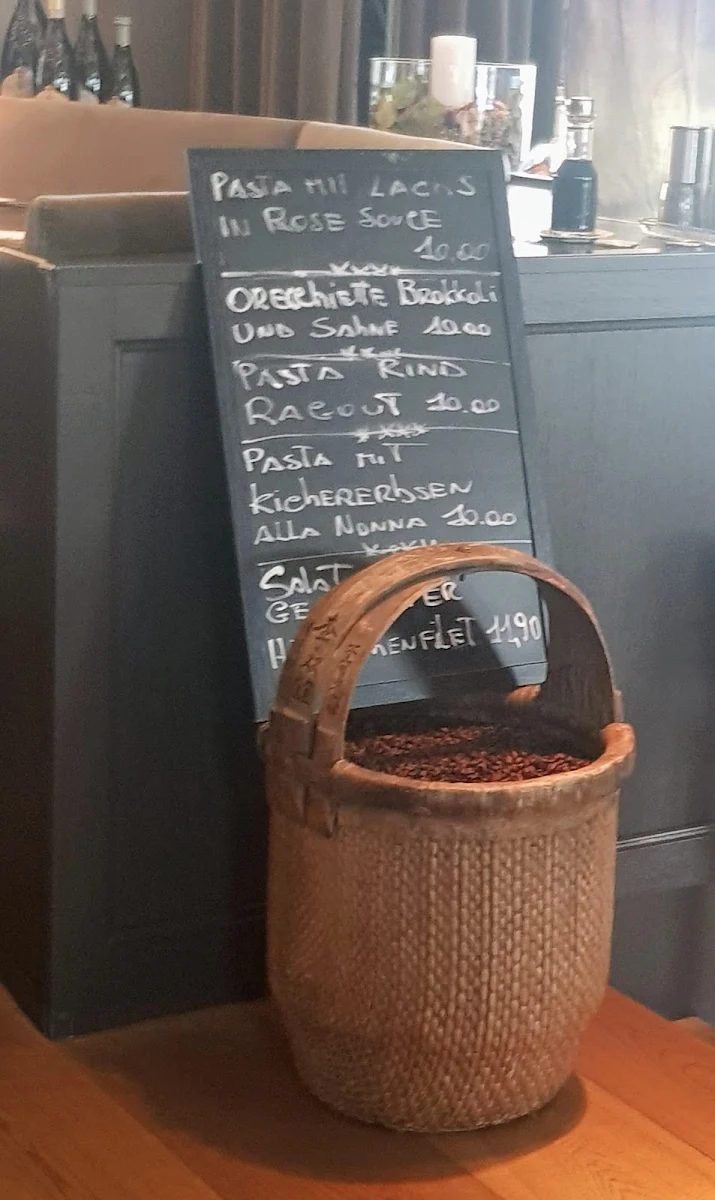 PASTA MIT LACHS
IN ROSE SOUCE
10.00
ORECCHIETTE BROKKOLI
UND SAHNE 10.00
PASTA RIND
RAGOUT 10.00
PASTA MIT
KICHERERBSEN
ALLA NONNA 10.00
SALAT
11,90